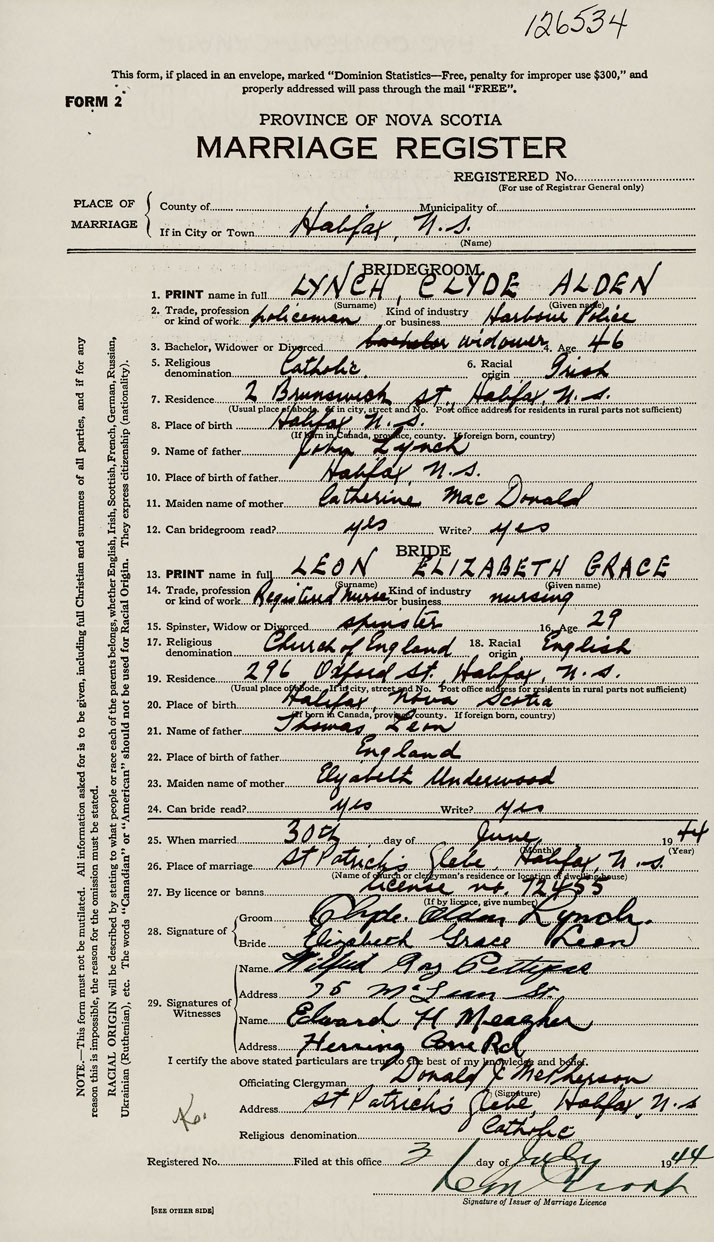 126534
This form, if placed in an envelope, marked “Dominion Statistics—Free, penalty for improper use $300,” and
properly addressed will pass through the mail “FREE”.
FORM 2
PROVINCE OF NOVA SCOTIA
MARRIAGE REGISTER
REGISTERED No.
(For use of Registrar General only)
PLACE OF MARRIAGE
County of Municipality of
If in City or Town Halifax, N.S.
(Name)
BRIDEGROOM
1. PRINT name in full LYNCH, CLYDE ALDEN
(Surname) (Given name)
2. Trade, profession or kind of work policeman Kind of industry or business Harbour Police
3. Bachelor, Widower or Divorced bachelor widower 4. Age 46
5. Religious denomination Catholic. 6. Racial origin Irish
7. Residence 2 Brunswick St., Halifax, N.S.
(Usual place of abode. If in city, street and No. Post office address for residents in rural parts not sufficient)
8. Place of birth Halifax N.S.
(If born in Canada, province, county. If foreign born, country)
9. Name of father John Lynch
10. Place of birth of father Halifax, N.S.
11. Maiden name of mother Catherine MacDonald
12. Can bridegroom read? yes Write? yes
BRIDE
13. PRINT name in full LEON ELIZABETH GRACE
(Surname) (Given name)
14. Trade, profession or kind of work Registered Nurse Kind of industry or business nursing
15. Spinster, Widow or Divorced spinster 16. Age 29
17. Religious denomination Church of England 18. Racial origin English
19. Residence 296 Oxford St., Halifax, N.S.
(Usual place of abode. If in city, street and No. Post office address for residents in rural parts not sufficient)
20. Place of birth Halifax, Nova Scotia
(If born in Canada, province, county. If foreign born, country)
21. Name of father Thomas Leon
22. Place of birth of father England
23. Maiden name of mother Elizabeth Underwood
24. Can bride read? yes Write? yes
25. When married 30th day of June 1944
(Month) (Year)
26. Place of marriage St Patrick's Glebe, Halifax, N.S.
(Name of church or clergyman's residence or location of dwelling house)
27. By licence or banns license no. 72455
(If by licence, give number)
28. Signature of
Groom Clyde Alden Lynch.
Bride Elizabeth Grace Leon
29. Signatures of Witnesses
Name Wilfred Roy Pettipas
Address 75 McLean St.
Name Edward H Meagher
Address Herring Cove Rd
I certify the above stated particulars are true to the best of my knowledge and belief.
Officiating Clergyman Donald J. McPherson
(Signature)
Address St Patrick's Glebe, Halifax, N.S
Religious denomination Catholic
Registered No. Filed at this office 3 day of July 1944
Signature of Issuer of Marriage Licence
[SEE OTHER SIDE]
NOTE.—This form must not be mutilated. All information asked for is to be given, including full Christian and surnames of all parties, and if for any
reason this is impossible, the reason for the omission must be stated.
RACIAL ORIGIN will be described by stating to what people or race each of the parents belongs, whether English, Irish, Scottish, French, German, Russian,
Ukrainian (Ruthenian), etc. The words “Canadian” or “American” should not be used for Racial Origin. They express citizenship (nationality).